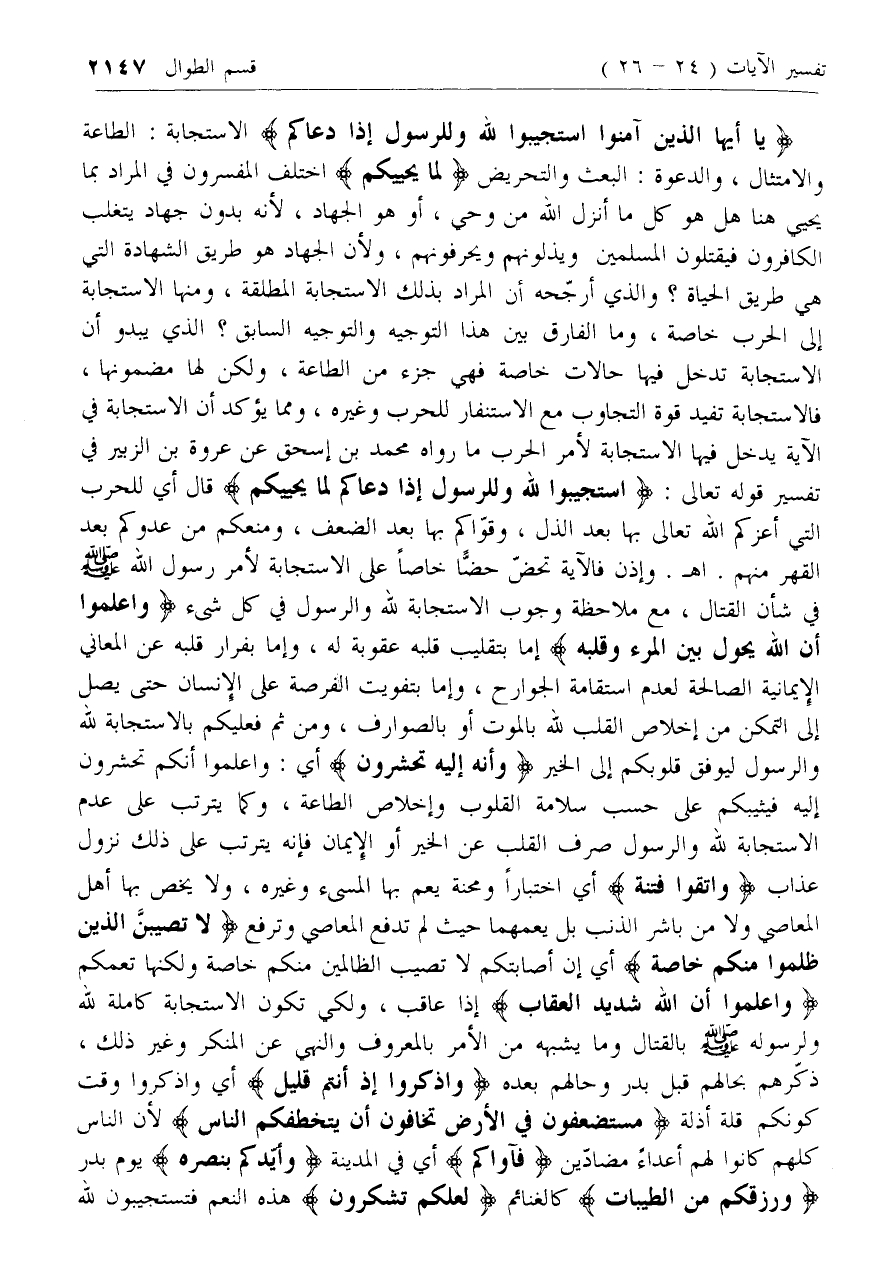 تفسير الآيات ( ٢٤ – ٢٦ ) قسم الطوال ٢١٤٧
﴿ يا أيها الذين آمنوا استجيبوا لله وللرسول إذا دعاكم ﴾ الاستجابة : الطاعة
والامتثال ، والدعوة : البعث والتحريض ﴿ لما يحييكم ﴾ اختلف المفسرون في المراد بما
يحيي هنا هل هو كل ما أنزل الله من وحي ، أو هو الجهاد ، لأنه بدون جهاد يتغلب
الكافرون فيقتلون المسلمين ويذلونهم ويحرفونهم ، ولأن الجهاد هو طريق الشهادة التي
هي طريق الحياة ؟ والذي أرجّحه أن المراد بذلك الاستجابة المطلقة ، ومنها الاستجابة
إلى الحرب خاصة ، وما الفارق بين هذا التوجيه والتوجيه السابق ؟ الذي يبدو أن
الاستجابة تدخل فيها حالات خاصة فهي جزء من الطاعة ، ولكن لها مضمونها ،
فالاستجابة تفيد قوة التجاوب مع الاستنفار للحرب وغيره ، ومما يؤكد أن الاستجابة في
الآية يدخل فيها الاستجابة لأمر الحرب ما رواه محمد بن إسحق عن عروة بن الزبير في
تفسير قوله تعالى : ﴿ استجيبوا لله وللرسول إذا دعاكم لما يحييكم ﴾ قال أي للحرب
التي أعزكم الله تعالى بها بعد الذل ، وقوّاكم بها بعد الضعف ، ومنعكم من عدوكم بعد
القهر منهم . اهـ . وإذن فالآية تحضّ حضًّا خاصاً على الاستجابة لأمر رسول الله ﷺ
في شأن القتال ، مع ملاحظة وجوب الاستجابة لله والرسول في كل شىء ﴿ واعلموا
أن الله يحول بين المرء وقلبه ﴾ إما بتقليب قلبه عقوبة له ، وإما بفرار قلبه عن المعاني
الإيمانية الصالحة لعدم استقامة الجوارح ، وإما بتفويت الفرصة على الإنسان حتى يصل
إلى التمكن من إخلاص القلب لله بالموت أو بالصوارف ، ومن ثم فعليكم بالاستجابة لله
والرسول ليوفق قلوبكم إلى الخير ﴿ وأنه إليه تحشرون ﴾ أي : واعلموا أنكم تحشرون
إليه فيثيبكم على حسب سلامة القلوب وإخلاص الطاعة ، وكما يترتب على عدم
الاستجابة لله والرسول صرف القلب عن الخير أو الإيمان فإنه يترتب على ذلك نزول
عذاب ﴿ واتقوا فتنة ﴾ أي اختباراً ومحنة يعم بها المسىء وغيره ، ولا يخص بها أهل
المعاصي ولا من باشر الذنب بل يعمهما حيث لم تدفع المعاصي وترفع ﴿ لا تصيبنَّ الذين
ظلموا منكم خاصة ﴾ أي إن أصابتكم لا تصيب الظالمين منكم خاصة ولكنها تعمكم
﴿ واعلموا أن الله شديد العقاب ﴾ إذا عاقب ، ولكي تكون الاستجابة كاملة لله
ولرسوله ﷺ بالقتال وما يشبهه من الأمر بالمعروف والنهي عن المنكر وغير ذلك ،
ذكّرهم بحالهم قبل بدر وحالهم بعده ﴿ واذكروا إذ أنتم قليل ﴾ أي واذكروا وقت
كونكم قلة أذلة ﴿ مستضعفون في الأرض تخافون أن يتخطفكم الناس ﴾ لأن الناس
كلهم كانوا لهم أعداءً مضادّين ﴿ فآواكم ﴾ أي في المدينة ﴿ وأيّدكم بنصره ﴾ يوم بدر
﴿ ورزقكم من الطيبات ﴾ كالغنائم ﴿ لعلكم تشكرون ﴾ هذه النعم فتستجيبون لله